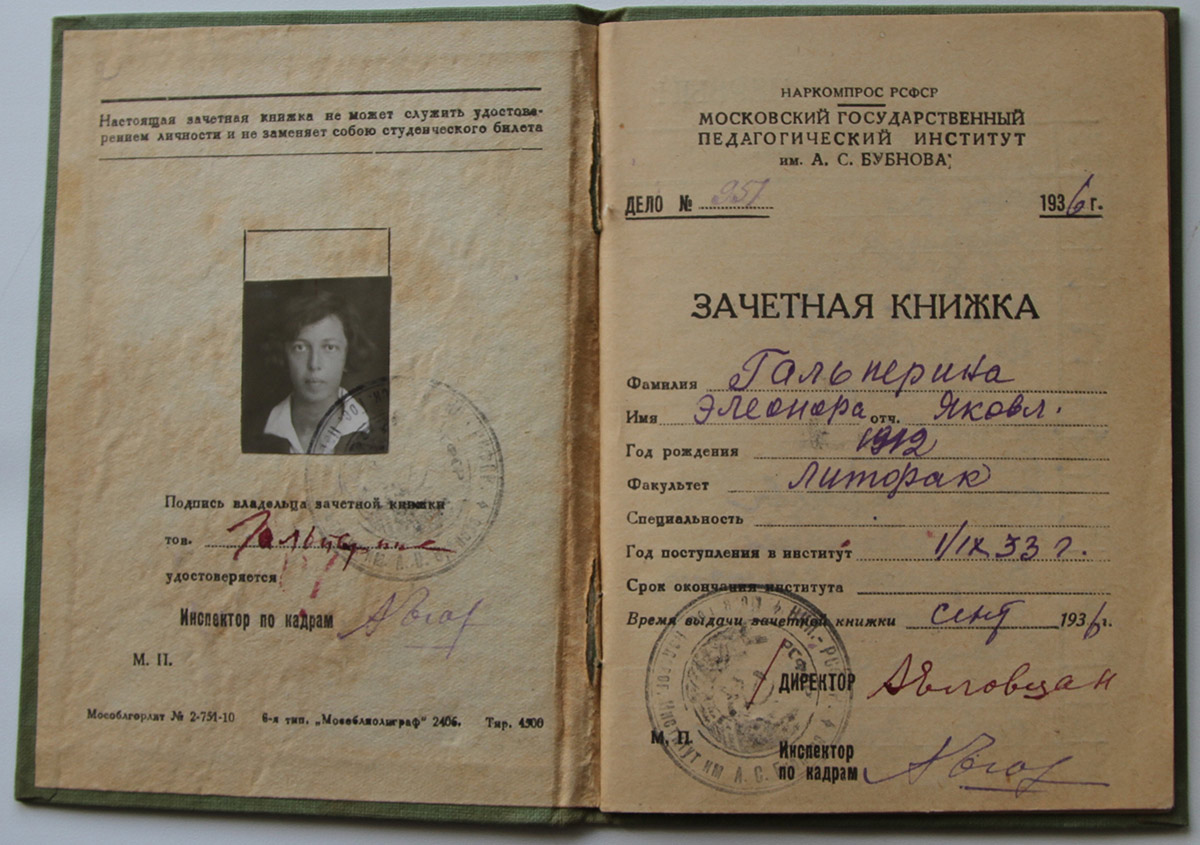 Настоящая зачетная книжка не может служить удостове-
рением личности и не заменяет собою студенческого билета
Подпись владельца зачетной книжки
тов. Гальперина
удостоверяется
Инспектор по кадрам
М. П.
Мособлгорлит № 2-751-10 6-я тип. „Мособлполиграф" 2406. Тир. 4500
НАРКОМПРОС РСФСР
МОСКОВСКИЙ ГОСУДАРСТВЕННЫЙ
ПЕДАГОГИЧЕСКИЙ ИНСТИТУТ
им. А. С. БУБНОВА
ДЕЛО № 951 1936 г.
ЗАЧЕТНАЯ КНИЖКА
Фамилия Гальперина
Имя Элеонора отч. Яковл.
Год рождения 1912
Факультет Литфак
Специальность
Год поступления в институт 1/IX 33 г.
Срок окончания института
Время выдачи зачетной книжки сент 1936 г.
ДИРЕКТОР
М. П.
Инспектор
по кадрам